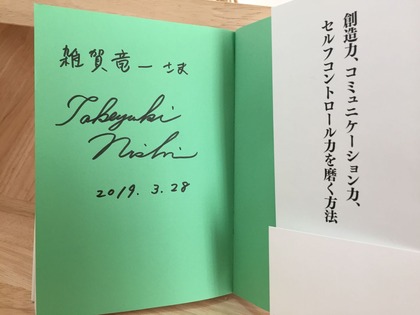 雑賀竜一さま
Takeyuki
Nishi
2019. 3. 28
創造力、コミュニケーション力、
セルフコントロール力を磨く方法